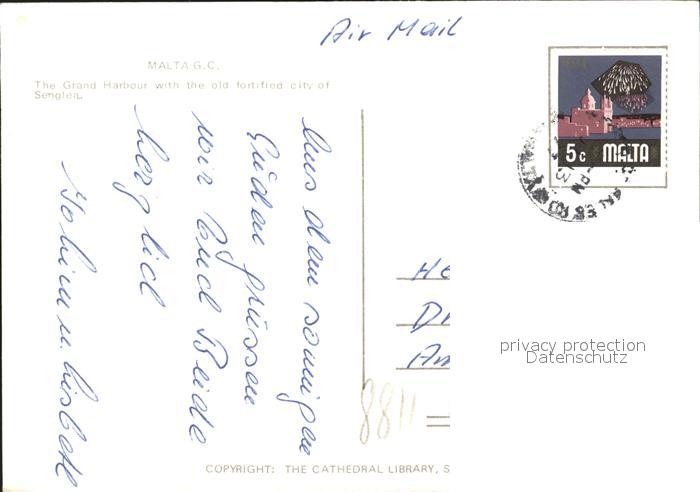 Air Mail
MALTA G.C.
The Grand Harbour with the old fortified city of
Senglea.
5c MALTA
Aus dem sonnigen
Süden grüssen
wir Euch Beide
herzlich
u Lisbeth
He
Di
Am
8811
privacy protection
Datenschutz
COPYRIGHT: THE CATHEDRAL LIBRARY, S